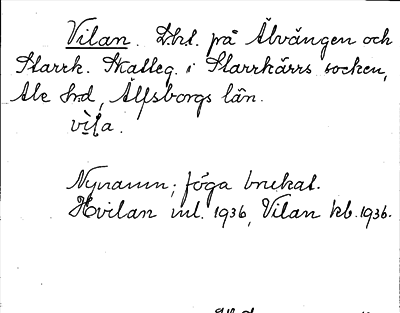 Vilan. D:hl. på Älvängen och
Starrk. Skatteg. i Starrkärrs socken,
Ale hrd, Älfsborgs län.
vìla.
Nynamn; föga brukat.
Hvilan ml. 1936, Vilan kb. 1936.